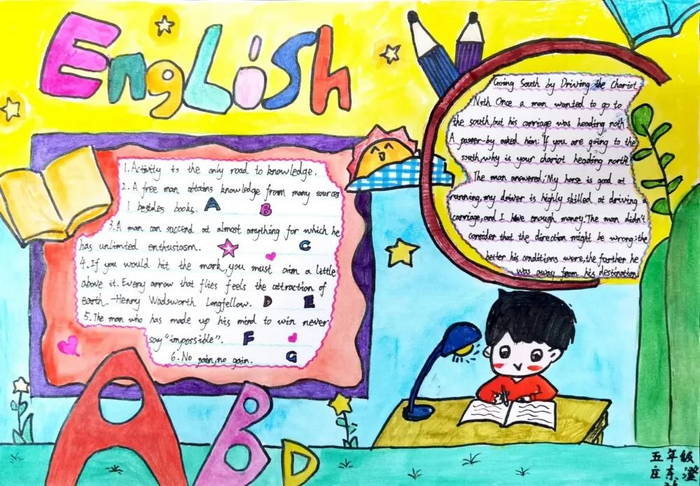 English
1. Activity is the only road to knowledge.
2. A free man obtains knowledge from many sources
besides books. A B
3. A man can succeed at almost anything for which he
has unlimited enthusiasm. C
4. If you would hit the mark, you must aim a little
above it. Every arrow that flies feels the attraction of
earth. —Henry Wadsworth Longfellow. D E
5. The man who has made up his mind to win never
say "impossible". F
6. No gain, no gain. G
Going South by Driving the Chariot
North Once a man wanted to go to
the south, but his carriage was heading north.
A passer-by asked him: If you are going to the
south, why is your chariot heading north?
The man answered, My horse is good at
running, my driver is highly skilled at driving
carriage, and I have enough money. The man didn't
consider that the direction might be wrong; the
better his conditions were, the farther he
was away from his destination
A B D
五年级